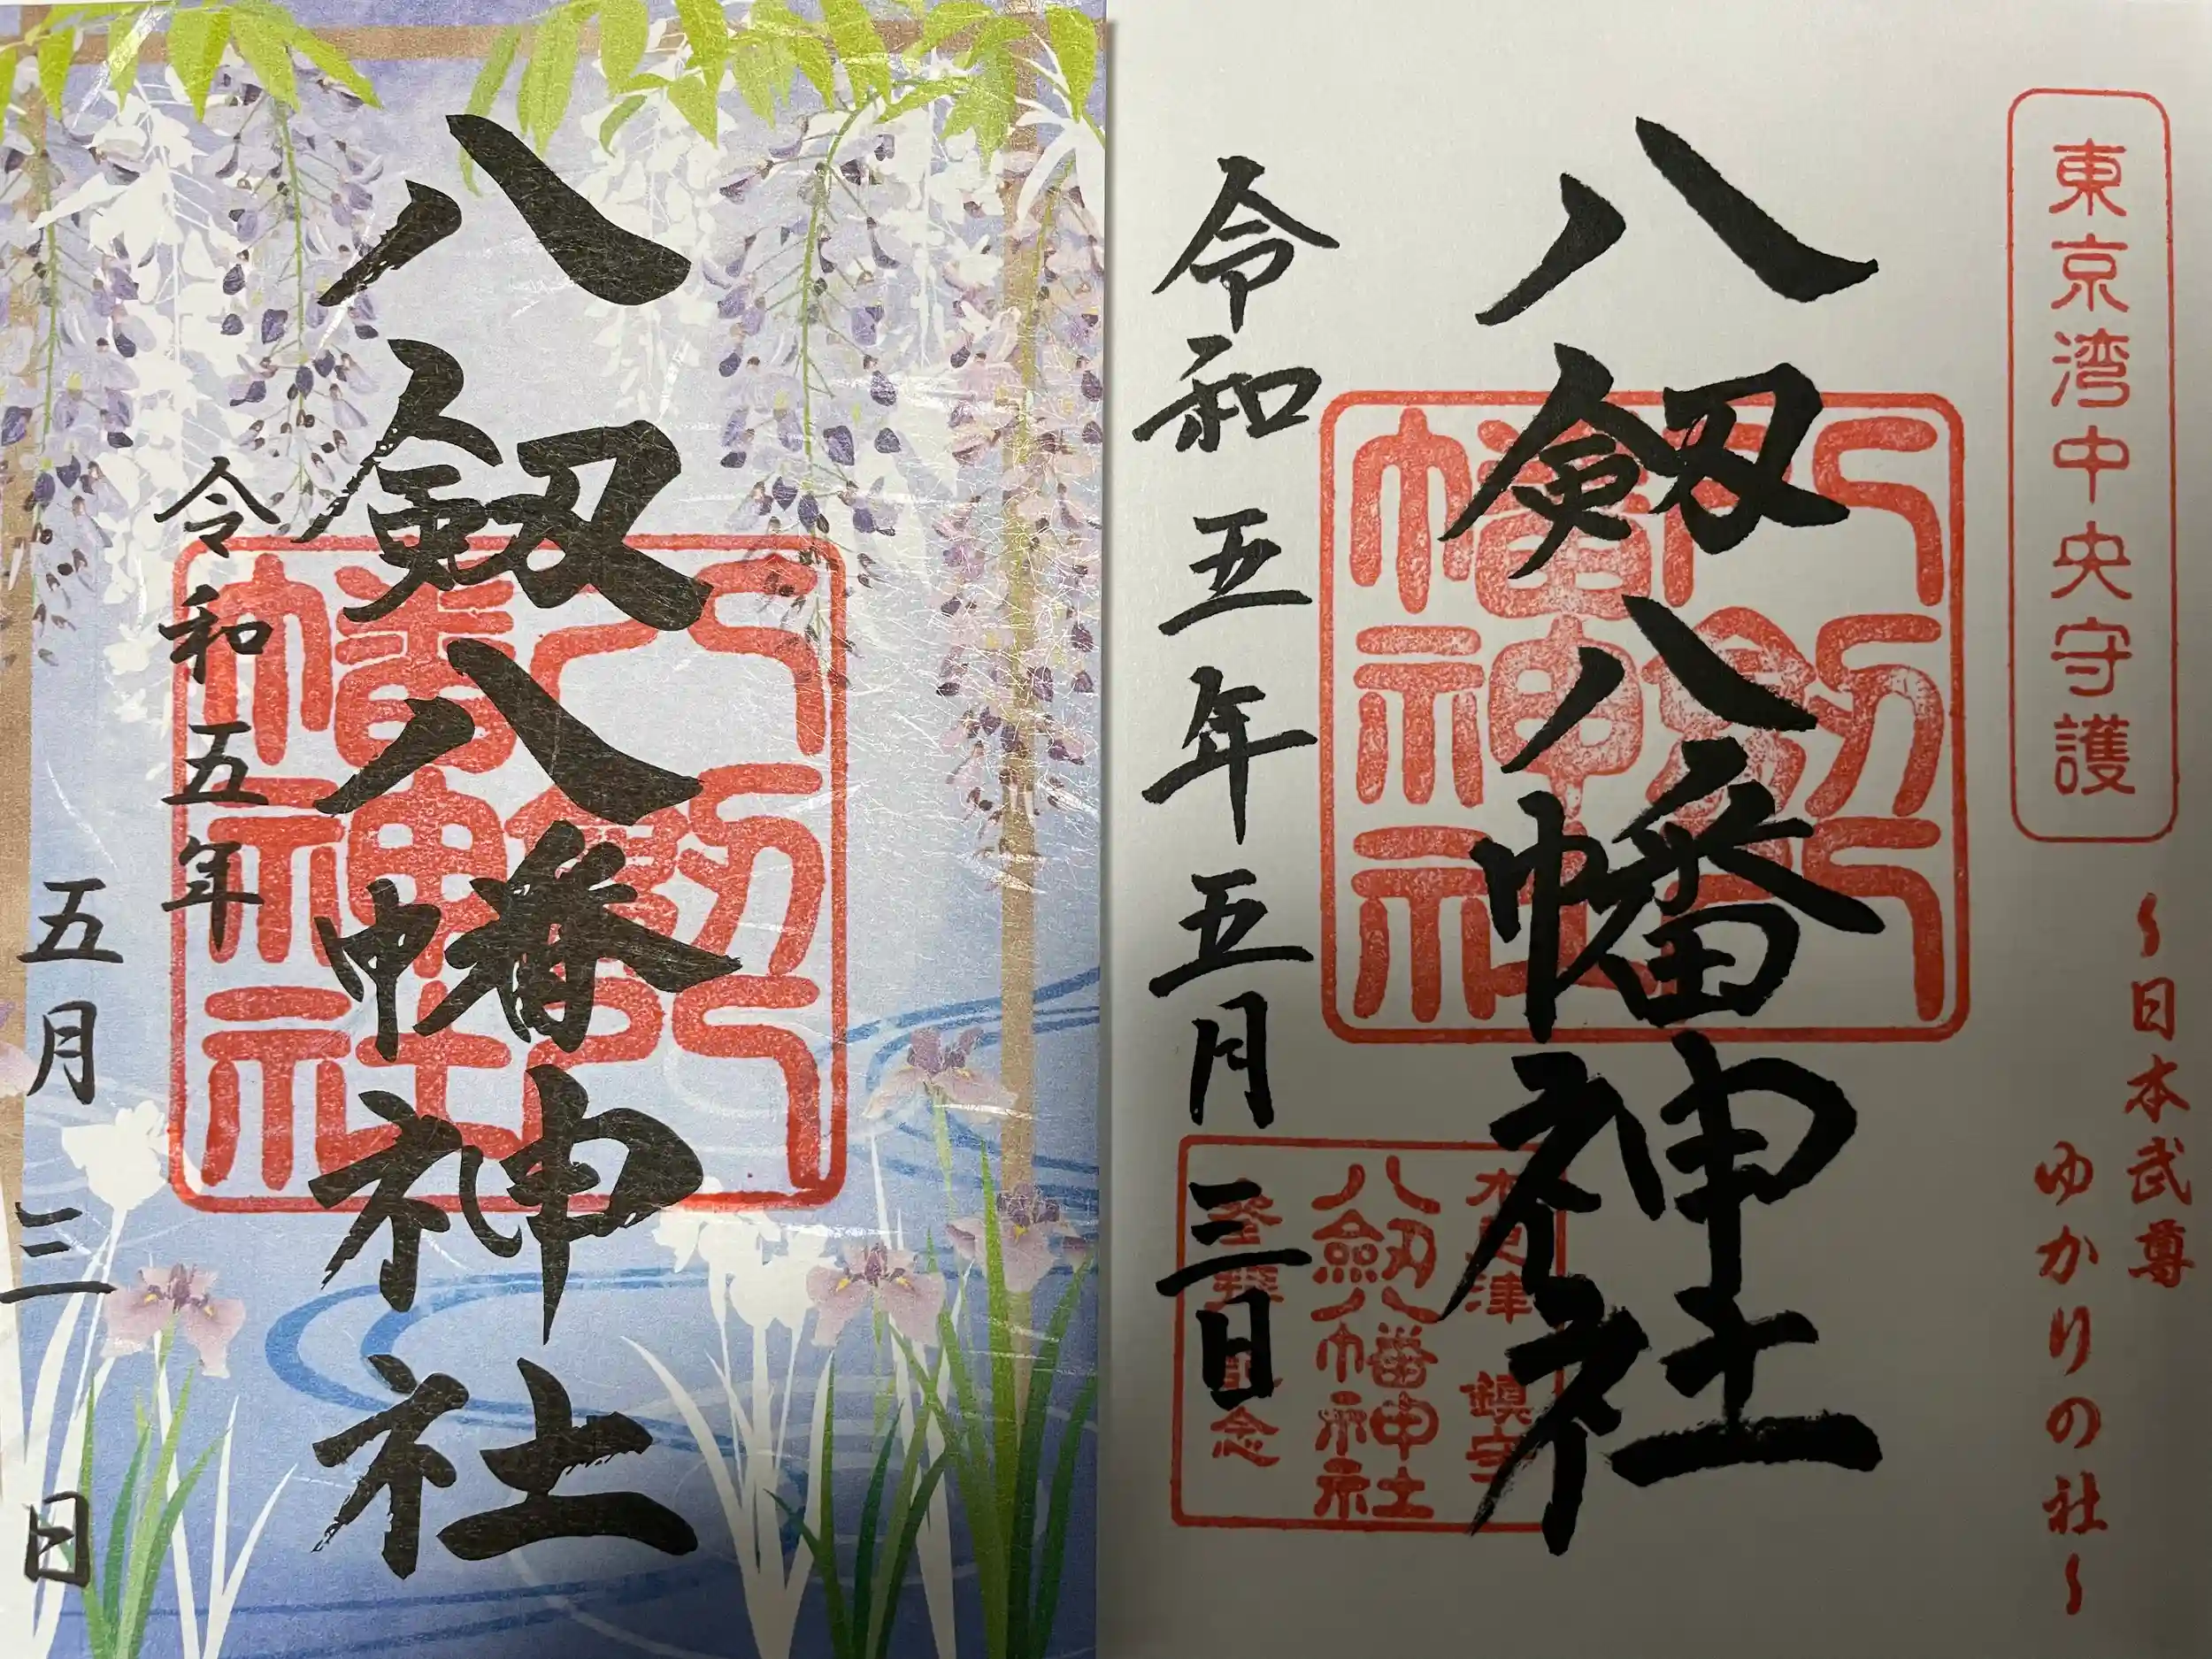 東京湾中央守護
～日本武尊
ゆかりの社～
八剱八幡神社
八剱八幡神社
木更津 鎮守
八劔八幡神社
登拝記念
令和五年五月三日
八剱八幡神社
八剱八幡神社
令和五年
五月三日